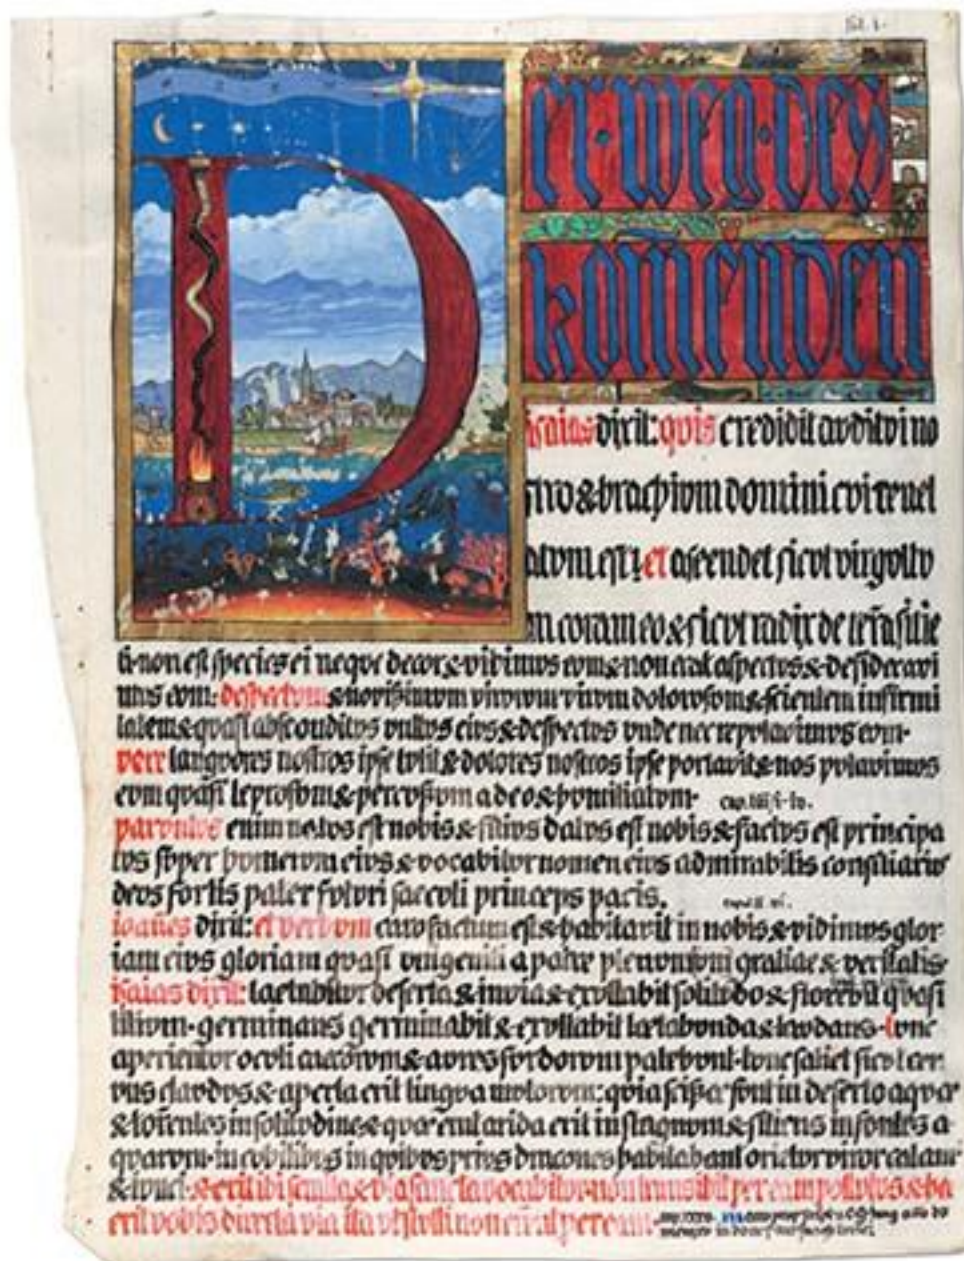 fol. i.
DER WEG DES
KOM̄ENDEN
isaias dixit: quis credidit auditui no
stro & brachium domini cui revel
atum est? et ascendet sicut virgultu
m coram eo & sicut radix de terra sitie
ti · non est species ei neque decor & vidimus eum & non erat aspectus & desideravi
mus eum: despectum & novissimum virorum virum dolorosum & scientem infirmi
tatem & quasi absconditus vultus eius & despectus unde nec reputavimus eum·
vere languores nostros ipse tulit & dolores nostros ipse portavit & nos putavimus
eum quasi leprosum & percussum a deo & humiliatum· cap. liii / i-iv.
parvulus enim natus est nobis & filius datus est nobis & factus est principa
tus super humerum eius & vocabitur nomen eius admirabilis consiliarius
deus fortis pater futuri saeculi princeps pacis. caput ix vi.
ioañes dixit: et verbum caro factum est & habitavit in nobis & vidimus glor
iam eius gloriam quasi unigeniti a patre plenum gratiae & veritatis·
isaias dixit: laetabitur deserta & invia & exultabit solitudo & florebit quasi
lilium · germinans germinabit & exultabit laetabunda & laudans · tunc
aperientur oculi caecorum & aures surdorum patebunt · tunc saliet sicut cer
vus claudus & aperta erit lingua mutorum: quia scissae sunt in deserto aquae
& torrentes in solitudine & quae erat arida erit in stagnum & sitiens in fontes a
quarum · in cubilibus in quibus prius dracones habitabant orietur viror calami
& iunci · & erit ibi semita & via sancta vocabitur · non transibit per eam pollutus & hae
erit vobis directa via ita ut stulti non errent per eam·